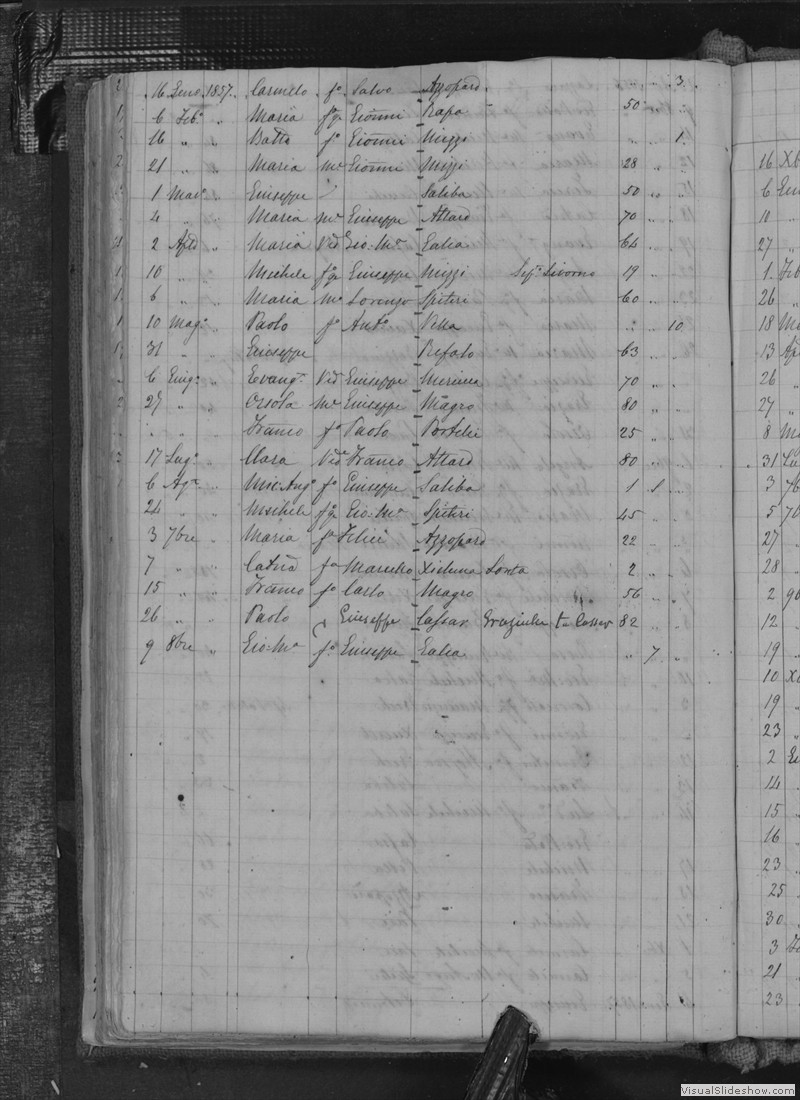 16 Genº 1857 Carmelo fº Salvo Azzopard " " 3
6 Febº " Maria fª Gionni Rapa 50 " "
16 " " Batta fº Gionni Muzzi " " 1
21 " " Maria mª Gionni Mizzi 28 " "
1 Marº " Giuseppe Saliba 50 " "
4 " " Maria mª Giuseppe Attard 70 " "
2 Aple " Maria Vid Gio: Mª Galea 64 " "
10 " " Michele Giuseppe Mizzi Livorno 19 " "
6 " " Maria mª Lorenzo Spiteri 60 " "
10 Magº " Paolo fº Antº Vella " " 10
31 " " Giuseppe Refalo 63 " "
6 Giugº " Evangª Vid Giuseppe 70 " "
27 " " Orsola mª Giuseppe Magro 80 " "
" " Franco fº Paolo Portelli 25 " "
17 Lugº " Clara Vid Franco Attard 80 " "
6 Agº " Mic: Angº fº Giuseppe Saliba 1 "
24 " " Michele Gio: Mª Spiteri 45 " "
3 7bre " Maria fª Felice Azzopard 22 " "
7 " " Catña fª Xicluna 2 " "
15 " " Franco fº Carlo Magro 56 " "
26 " " Paolo Giuseppe Cassar 82 " "
9 8bre " Gio: Mª fº Giuseppe Galea " 7 "
16 Xb
6 Gen
10
27 "
1 Feb
26 "
18 Ma
13 Ap
26 "
27 "
8 Ma
31 Lu
3 7b
5 7b
27 "
28 "
2 9b
12 "
19 "
10 Xb
19 "
23 "
2 Ge
14 "
15 "
16 "
23 "
25 "
30 "
3 Fe
21 "
23 "
VisualSlideshow.com